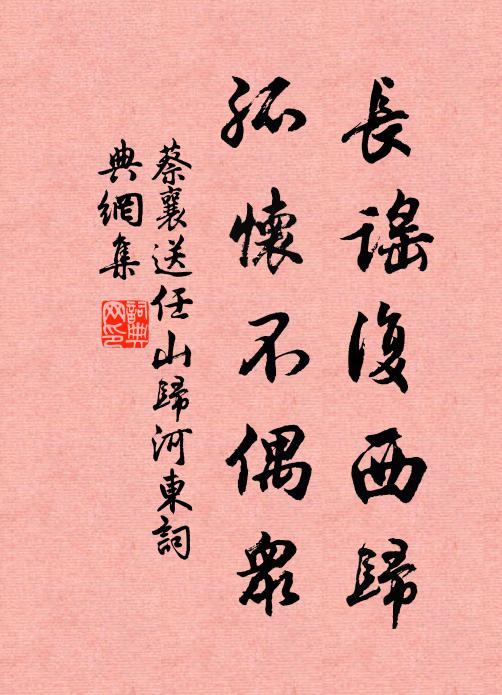 長謠復西歸
孤懷不偶眾
蔡襄送任山歸河東詞
典網集
詞典網印